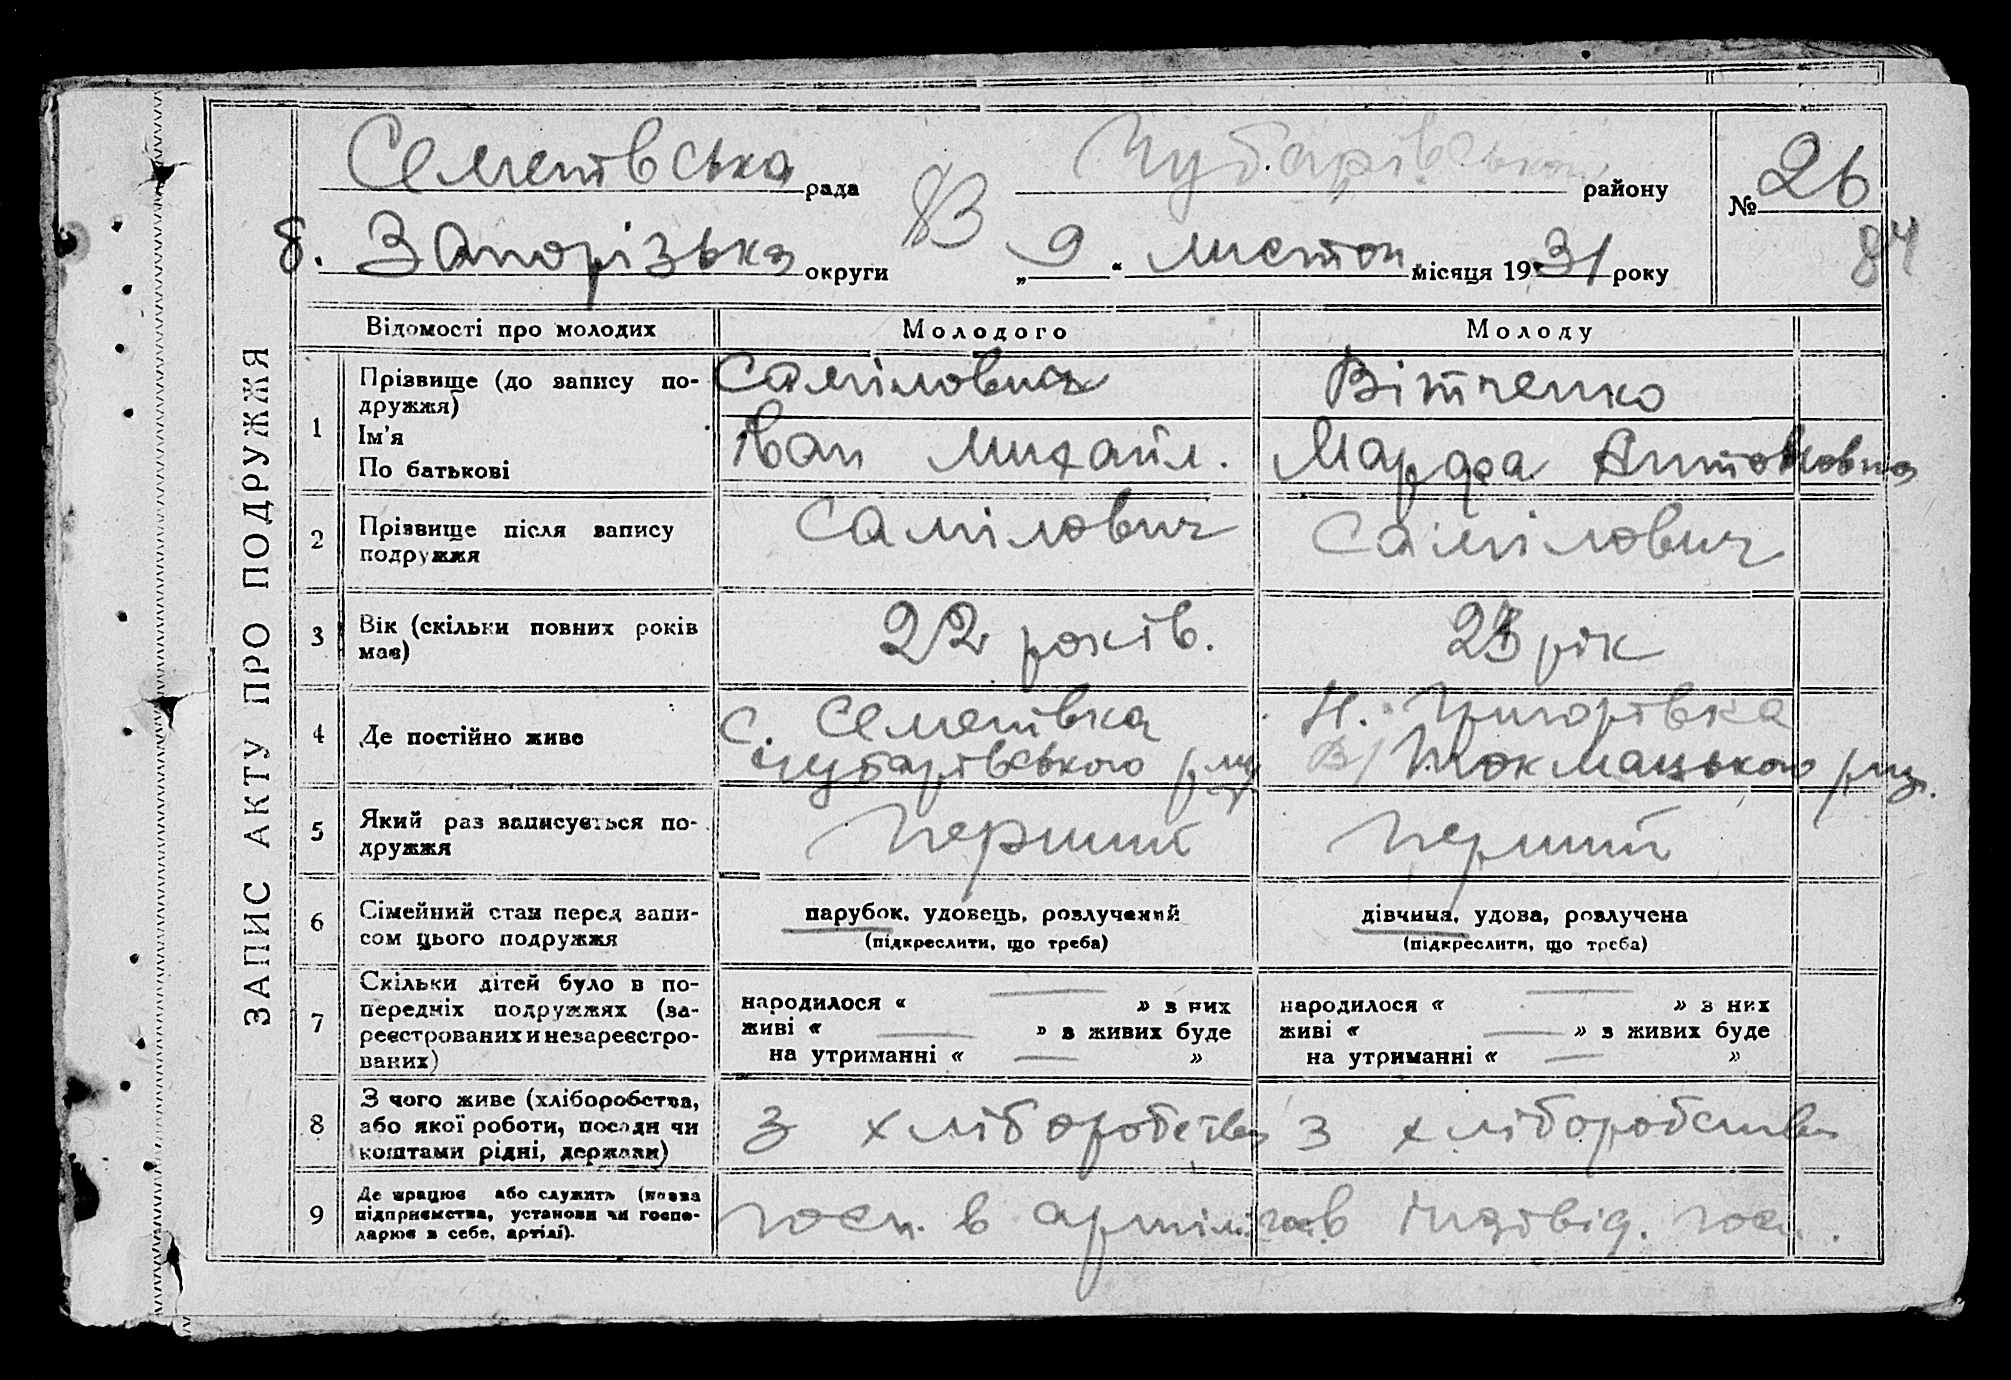 ЗАПИС АКТУ ПРО ПОДРУЖЖЯ
Семенівська рада
Чубарівського району
№ 26
84
б. Запорізька округи
„ 9 “ листоп. місяця 1931 року
Відомості про молодих Молодого Молоду
1 Прізвище (до запису подружжя)
Ім'я
По батькові
Самілович
Іван Михайл.
Вітченко
Марфа Антоновна
2 Прізвище після запису подружжя
Самілович
Самілович
3 Вік (скільки повних років має)
22 років.
рік
4 Де постійно живе
с. Семенівка
Чубарівського р-ну
Н. Григорівка
В/Токмацького р-ну.
5 Який раз записується подружжя
Перший
Перший
6 Сімейний стан перед записом цього подружжя
парубок, удовець, розлучений
(підкреслити, що треба)
дівчина, удова, розлучена
(підкреслити, що треба)
7 Скільки дітей було в попередніх подружжях (зареєстрованих и незареєстрованих)
народилося « — » з них
живі « — » з живих буде
на утриманні « — »
народилося « — » з них
живі « — » з живих буде
на утриманні « — »
8 З чого живе (хліборобства, або якої роботи, посади чи коштами рідні, держави)
З хліборобства
З хліборобства
9 Де працює або служить (назва підприємства, установи чи господарює в себе, артілі).
госп. в артілі
в індивід. госп.